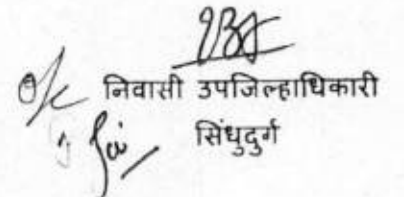 O/c निवासी उपजिल्हाधिकारी
सिंधुदुर्ग